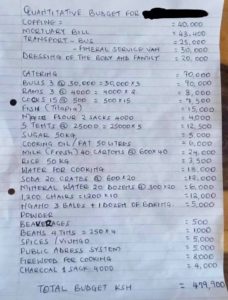 QUANTITATIVE BUDGET FOR
COFFING = = 40,000
MORTUARY BILL = 43,400
TRANSPORT - BUS = 25,000
- FUNERAL SERVICE VAN = 30,000
DRESSING OF THE BODY AND FAMILY = 20,000
CATERING = 70,000
BULLS 3 @ 30,000 = 30,000 x 3 = 90,000
RAMS 2 @ 4000 = 4000 x 2 = 8,000
COOKS 15 @ 500 = 500 x 15 = 7,500
FISH (Tilapia) = 15,000
FLOUR 2 SACKS 4000 = 4,000
5 TENTS @ 2500 = 2500 x 5 = 12,500
SUGAR 50KG = 5,000
COOKING OIL/FAT 50 LITRES = 6,000
MILK (FRESH) 40 CARTONS @ 600 x 40 = 24,000
RICE 50 KG = 3,500
WATER FOR COOKING = 18,000
SODA 20 CRATES @ 600 x 20 = 12,000
MINERAL WATER 20 DOZENS @ 300 x 20 = 6,000
1200 CHAIRS = 1200 x 10 = 12,000
NGANO 3 BALES + 1 DOZEN OF BAKING = 5,000
POWDER
BEAVERAGES = 500
BEANS 4 TINS = 250 x 4 = 1000
SPICES / VIUNGO = 5,000
PUBLIC ADRESS SYSTEM = 5,000
FIREWOOD FOR COOKING = 8,000
CHARCOAL 1 SACK 4000 = 4,000
TOTAL BUDGET KSH = 499,900